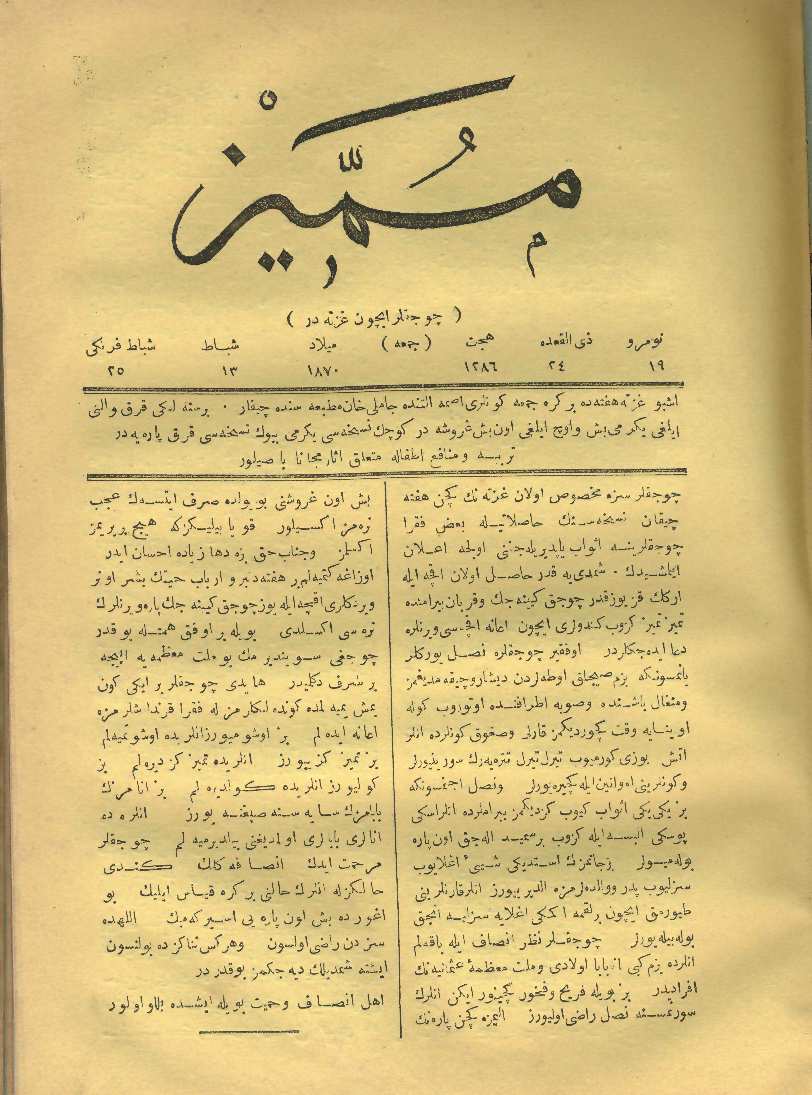 مُمَيِّز
( چوجقلر ایچون غزته در )
نومرو ذی القعده هجرت ( جمعه ) میلاد شباط شباط فرنکی
١٩ ٢٤ ١٢٨٦ ١٨٧٠ ١٣ ٢٥
اشبو غزته هفته ده بر کره جمعه کونلری اصمه التنده جاملی خان مطبعه سنده چیقار ٠ برسنه لکی قرق والتی
ایلغی یکرمی بش واوچ ایلغی اون بش غروشه در کوچك نسخه سی یکرمی بیوك نسخه سی قرق پاره یه در
تربیه ومنافع اطفاله متعلق اثار مجانا باصیلور
چوجقلر سزه مخصوص اولان غزته نك کچن هفته
چیقان نسخه سنك حاصلاتیله بعض فقرا
چوجقلرینه اثواب یاپدیریله جغنی اولجه اعلان
ایتمشیدك ٠ شمدی یه قدر حاصل اولان اقچه ایله
ارکك قز یوز قدر چوجق کینه جك وقربان بیرامنده
تمیز تمیز کزوب کندولری ایچون اعانه اقچه سی ویرنلره
دعا ایده جکلردر اوفقیر چوجقلره نصل یورکلر
یانمسونکه بزم صیجاق اوطه لردن دیشارو چیقه مدیغمز
ومنغال باشنده وصوبه اطرافنده اوتوروب کوله
اوینایه وقت کچوردیکمز قارلی وصغوق کونلرده انلر
اتش یوزی کورمیوب تیرل تیرل تتره یه رك سورینیورلر
وکونلرینی اه وانین ایله کچیره یورلر ونصل اجنمسونکه
بز یکی یکی اثواب کیوب کزدیکمز بیراملرده انلر اسکی
پوسکی البسه ایله کزوب بر سمید اله جق اون پاره
بوله میورلر بز جانمزك استدیکی شیئی اغلایوب
سزلیوب پدر ووالده لرمزه الدیرییورز انلر قارنلرینی
طیورمق ایچون بر لقمه اکمکی اغلایه سزلایه انجق
بوله بیله یورلر چوجقلر نظر انصاف ایله باقه لم
انلرده بزم کبی انا بابا اولادی وملت معظمهٔ عثمانیه نك
افرادیدر بز بویله فریح وفخور کچینور ایکن انلرك
سورنمسنه نصل راضی اولیورز المزه کچن پاره نك
بش اون غروشنی بو یولده صرف ایتسه ك عجب
نه مز اکسیلور قویا بیلیکزکه هیچ بر یریمز
اکسلمز وجناب حق بزه دها زیاده احسان ایدر
اوزاغه کتمیه لم بر هفته دنبرو ارباب حمیتك بشر اونر
ویردکلری اقچه ایله یوز چوجق کینه جك پاره ویرنلرك
نره سی اکسلدی بویله بر اوفق همتله بو قدر
چوجغی سویندیرمك بو ملت معظمه یه
بر شرف دکلیدر هایدی چوجقلر بر ایکی کون
یمش یمیه لمده کونده لکلرمزله فقرا قرنداشلرمزه
اعانه ایده لم بز اوشومیورز انلریده اوشوتمیه لم
بز تمیز کزییورز انلریده تمیز کزدیره لم بز
کولیورز انلریده کولدیره لم بز انامزك
بابامزك سایه سنه صیغنه یورز انلره ده
انالری بابالری اولمدیغنی بیلدیرمیه لم چوجقلر
مرحمت ایدك انصافه کلك کندی
حالکزله انلرك حالنی بر کره قیاس ایلیك بو
اغورده بش اون پاره یی اسیرکه میك اللهده
سزدن راضی اولسون وهرکس ثناکزده بولنسون
ایشته شمدیلك دیه جکمز بوقدر در
اهل انصاف وحمیت بویله ایشده بللو اولور